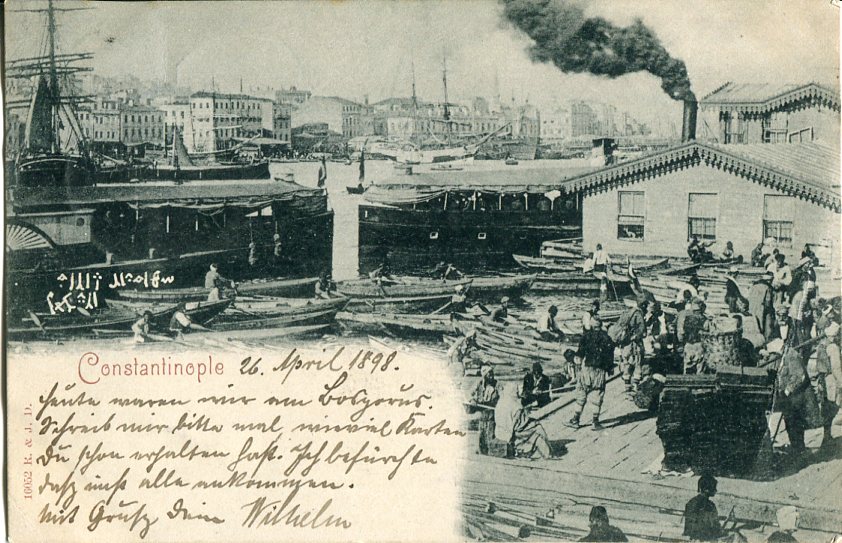 Constantinople 26. April 1898.
Heute waren wir am Bosporus.
Schreib mir bitte mal wieviel Karten
Du schon erhalten hast. Ich befürchte
daß nicht alle ankommen.
Mit Gruß Dein Wilhelm
16052 R. & J. D.